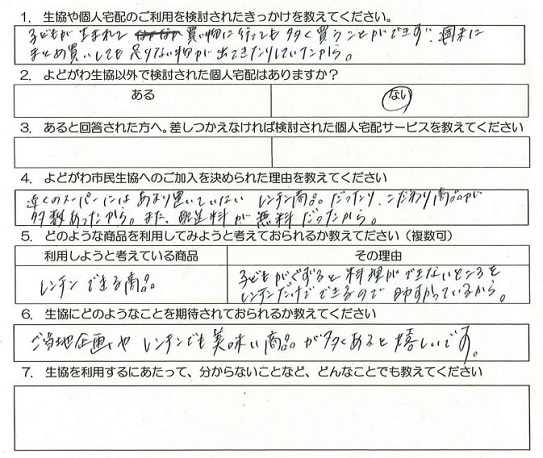 1. 生協や個人宅配のご利用を検討されたきっかけを教えてください。
子どもが生まれて 買い物に行っても多く買うことができず、週末に
まとめ買いしても足りない物が出てきたりしていたから。
2. よどがわ生協以外で検討された個人宅配はありますか？
ある ない
3. あると回答された方へ。差しつかえなければ検討された個人宅配サービスを教えてください
4. よどがわ市民生協へのご加入を決められた理由を教えてください
近くのスーパーにはあまり置いていない レンチン商品だったり、こだわり商品が
多数あったから。また、配送料が無料だったから。
5. どのような商品を利用してみようと考えておられるか教えてださい（複数可）
利用しようと考えている商品 その理由
レンチンできる商品 子どもがぐずると料理ができないところを
レンチンだけでできるので助かっているから。
6. 生協にどのようなことを期待されておられるか教えてください
ご当地企画や レンチンでも美味い商品が多くあると嬉しいです。
7. 生協を利用するにあたって、分からないことなど、どんなことでも教えてください